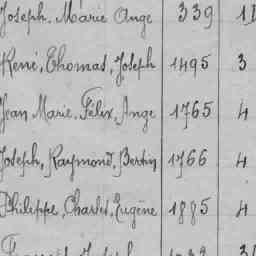 Joseph, Marie Ange 339
René, Thomas, Joseph 1495 3
Jean Marie, Félix, Ange 1765 4
Joseph, Raymond, Bertin 1766 4
Philippe, Charles, Eugène 1885 4